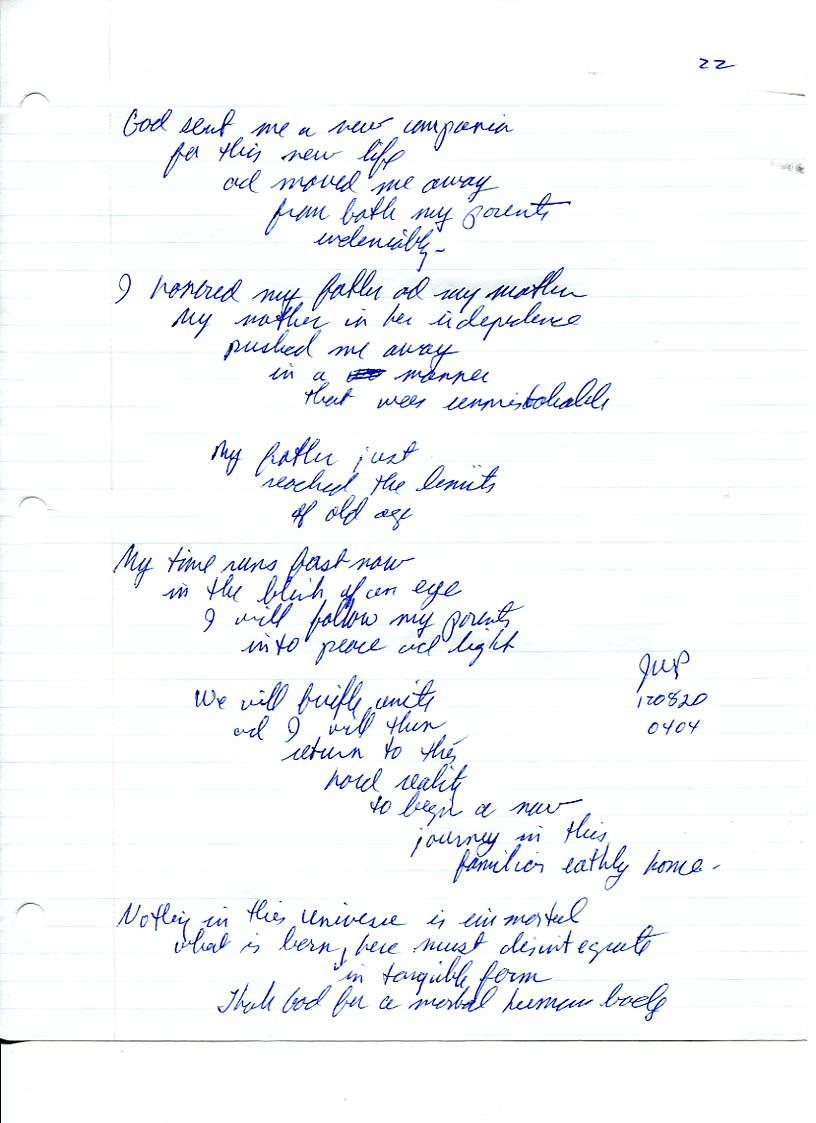 22
God sent me a new companion
for this new life
ad moved me away
from both my parents
undeniably -
I honored my father ad my mother
My mother in her idependence
pushed me away
in a manner
that was unmistakable
My father just
reached the limits
of old age
My time runs fast now
in the blink of an eye
I will follow my parents
into peace ad light
JWP
We will briefly unite
120820
ad I will then
0404
return to this
hard reality
to begin a new
journey in this
familiar eathly home -
Nothing in this universe is immortal
what is born, here must disintegrate
in tangible form
Thank God for a mortal human body